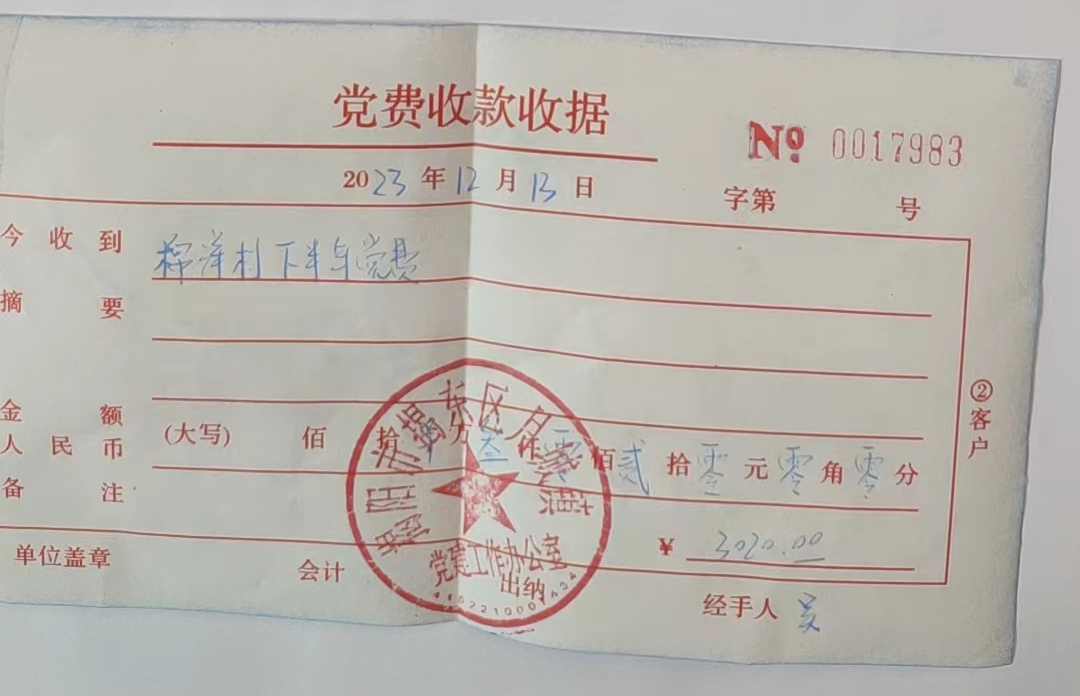 党费收款收据
№ 0017983
2023年12月13日
字第 号
今收到 下半年党费
摘要
金额
人民币 (大写) 佰 拾 万 叁仟零佰贰拾零元零角零分
备注
¥ 3020.00
单位盖章 会计 出纳 经手人
②客户
揭阳市揭东区月城镇
党建工作办公室